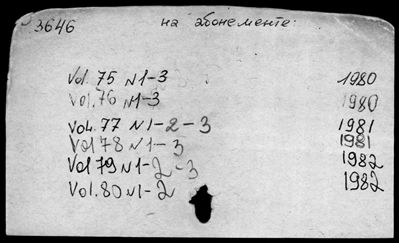 3646 на абонементе:
Vol. 75 N1-3 1980
Vol. 76 N1-3 1980
Vol. 77 N1-2-3 1981
Vol 78 N1-3 1981
Vol 79 N1-2-3 1982
Vol. 80 N1-2 1982